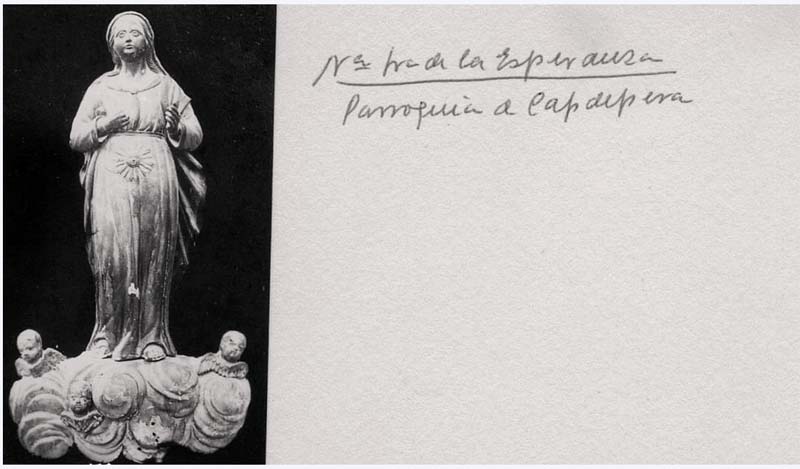 Nª Sra de la Esperanza
Parroquia de Capdepera